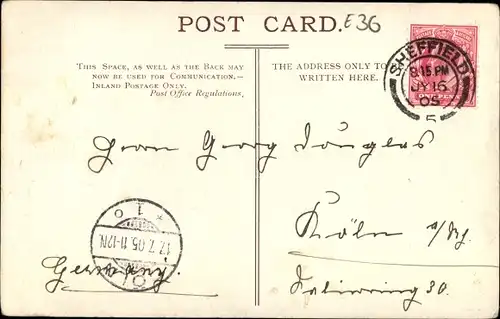 POST CARD.
E36
THIS SPACE, AS WELL AS THE BACK MAY
NOW BE USED FOR COMMUNICATION.—
INLAND POSTAGE ONLY.
Post Office Regulations,
THE ADDRESS ONLY TO
WRITTEN HERE.
SHEFFIELD
8.15 PM
JY 16
05
5
Herrn Georg Douglas
Köln a/Rh.
Salierring 30.
Germany.
* 1 o
17.7.05.11-12N.